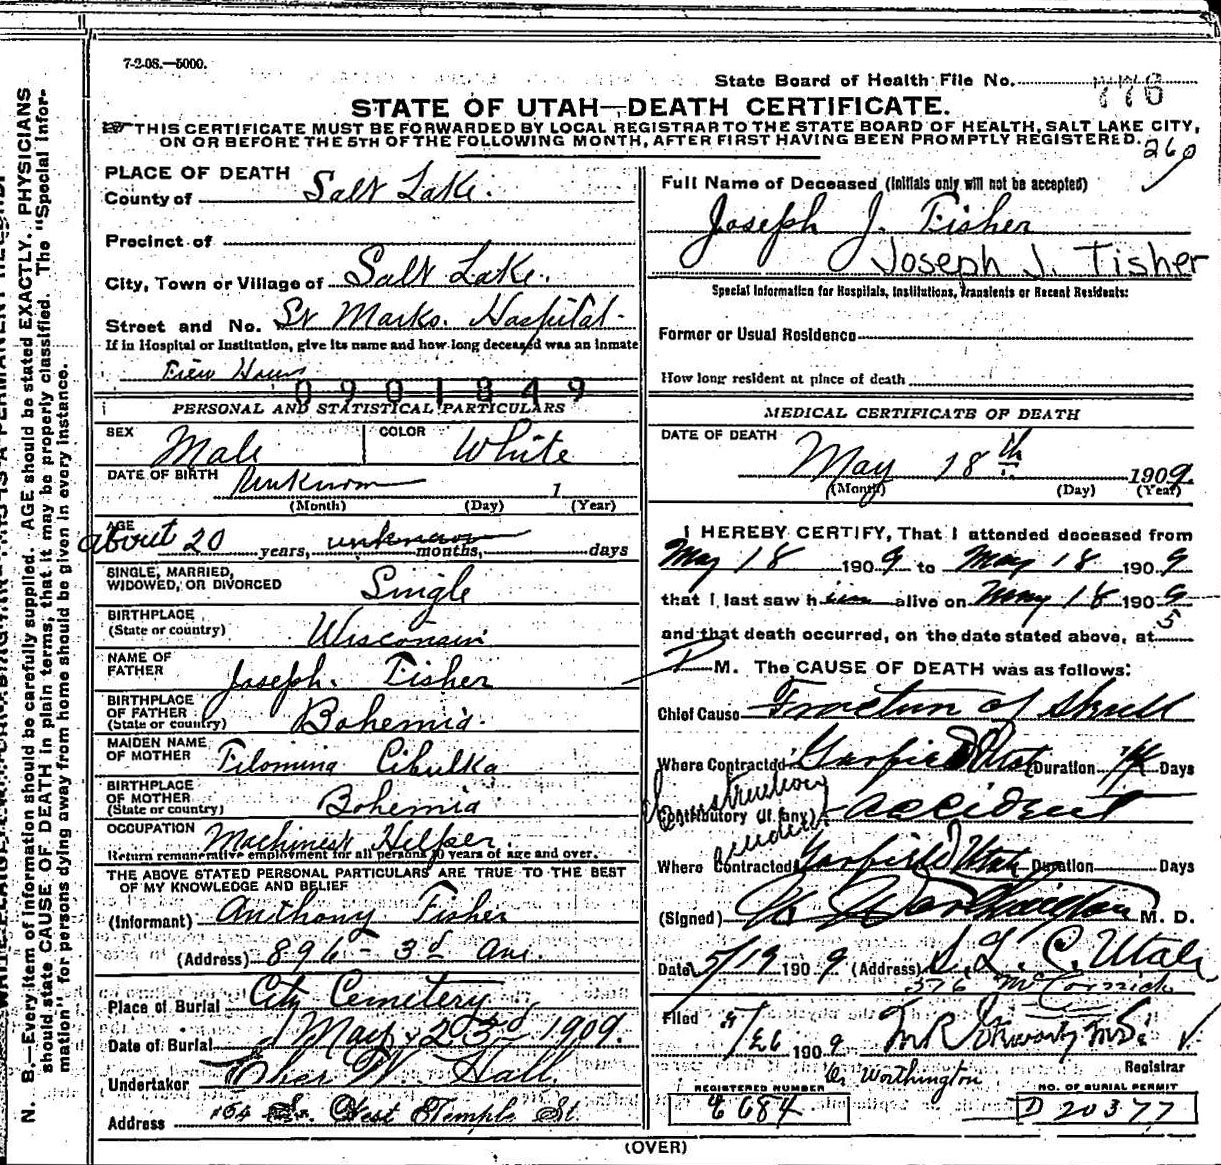 7-2-08.—5000.
State Board of Health File No. 776
STATE OF UTAH—DEATH CERTIFICATE.
THIS CERTIFICATE MUST BE FORWARDED BY LOCAL REGISTRAR TO THE STATE BOARD OF HEALTH, SALT LAKE CITY,
ON OR BEFORE THE 5TH OF THE FOLLOWING MONTH, AFTER FIRST HAVING BEEN PROMPTLY REGISTERED.
260
PLACE OF DEATH
County of Salt Lake.
Precinct of
City, Town or Village of Salt Lake.
Street and No. St Marks. Hospital
If in Hospital or Institution, give its name and how long deceased was an inmate
Hours
0901849
PERSONAL AND STATISTICAL PARTICULARS
SEX Male
COLOR White
DATE OF BIRTH Unknown 1
(Month) (Day) (Year)
AGE
about 20 years, unknown months, days
SINGLE, MARRIED,
WIDOWED, OR DIVORCED Single
BIRTHPLACE
(State or country) Wisconsin
NAME OF
FATHER Joseph. Fisher
BIRTHPLACE
OF FATHER
(State or country) Bohemia.
MAIDEN NAME
OF MOTHER Filomina Cibulka
BIRTHPLACE
OF MOTHER
(State or country) Bohemia
OCCUPATION Machinest Helper.
Return remunerative employment for all persons 10 years of age and over.
THE ABOVE STATED PERSONAL PARTICULARS ARE TRUE TO THE BEST
OF MY KNOWLEDGE AND BELIEF
(Informant) Anthony Fisher
(Address) 896 - 3d Ave.
Place of Burial City Cemetery
Date of Burial May 23d 1909.
Undertaker W. Hall
Address 164 So. West Temple St
Full Name of Deceased (Initials only will not be accepted)
Joseph J. Fisher
Joseph J. Fisher
Special Information for Hospitals, Institutions, Transients or Recent Residents:
Former or Usual Residence
How long resident at place of death
MEDICAL CERTIFICATE OF DEATH
DATE OF DEATH
May 18th 1909.
(Month) (Day) (Year)
I HEREBY CERTIFY, That I attended deceased from
May 18 1909 to May 18 1909
that I last saw him alive on May 18 1909
and that death occurred, on the date stated above, at 5
P M. The CAUSE OF DEATH was as follows:
Chief Cause Fracture of Skull
Where Contracted Garfield Utah Duration Days
Construction
Contributory (if any) accident
Where Contracted Garfield Utah Duration Days
(Signed) Worthington M. D.
Date 5/19 1909 (Address) S. L. C. Utah
376 McCornick
Filed 5/26 1909
Registrar
Dr Worthington
REGISTERED NUMBER
NO. OF BURIAL PERMIT
6684
D 20377
(OVER)
N. B.—Every item of information should be carefully supplied. AGE should be stated EXACTLY. PHYSICIANS
should state CAUSE OF DEATH in plain terms, that it may be properly classified. The "Special Infor-
mation" for persons dying away from home should be given in every instance.